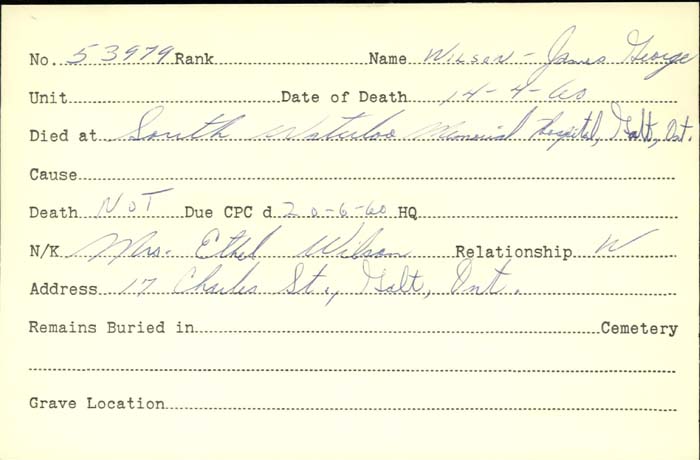 No. 53979 Rank Name Wilson - James George
Unit Date of Death 14-4-60
Died at South Waterloo Memorial Hospital, Galt, Ont.
Cause
Death NOT Due CPC d 20-6-60 HQ
N/K Mrs. Ethel Wilson Relationship W
Address 17 Charles St., Galt, Ont.
Remains Buried in Cemetery
Grave Location